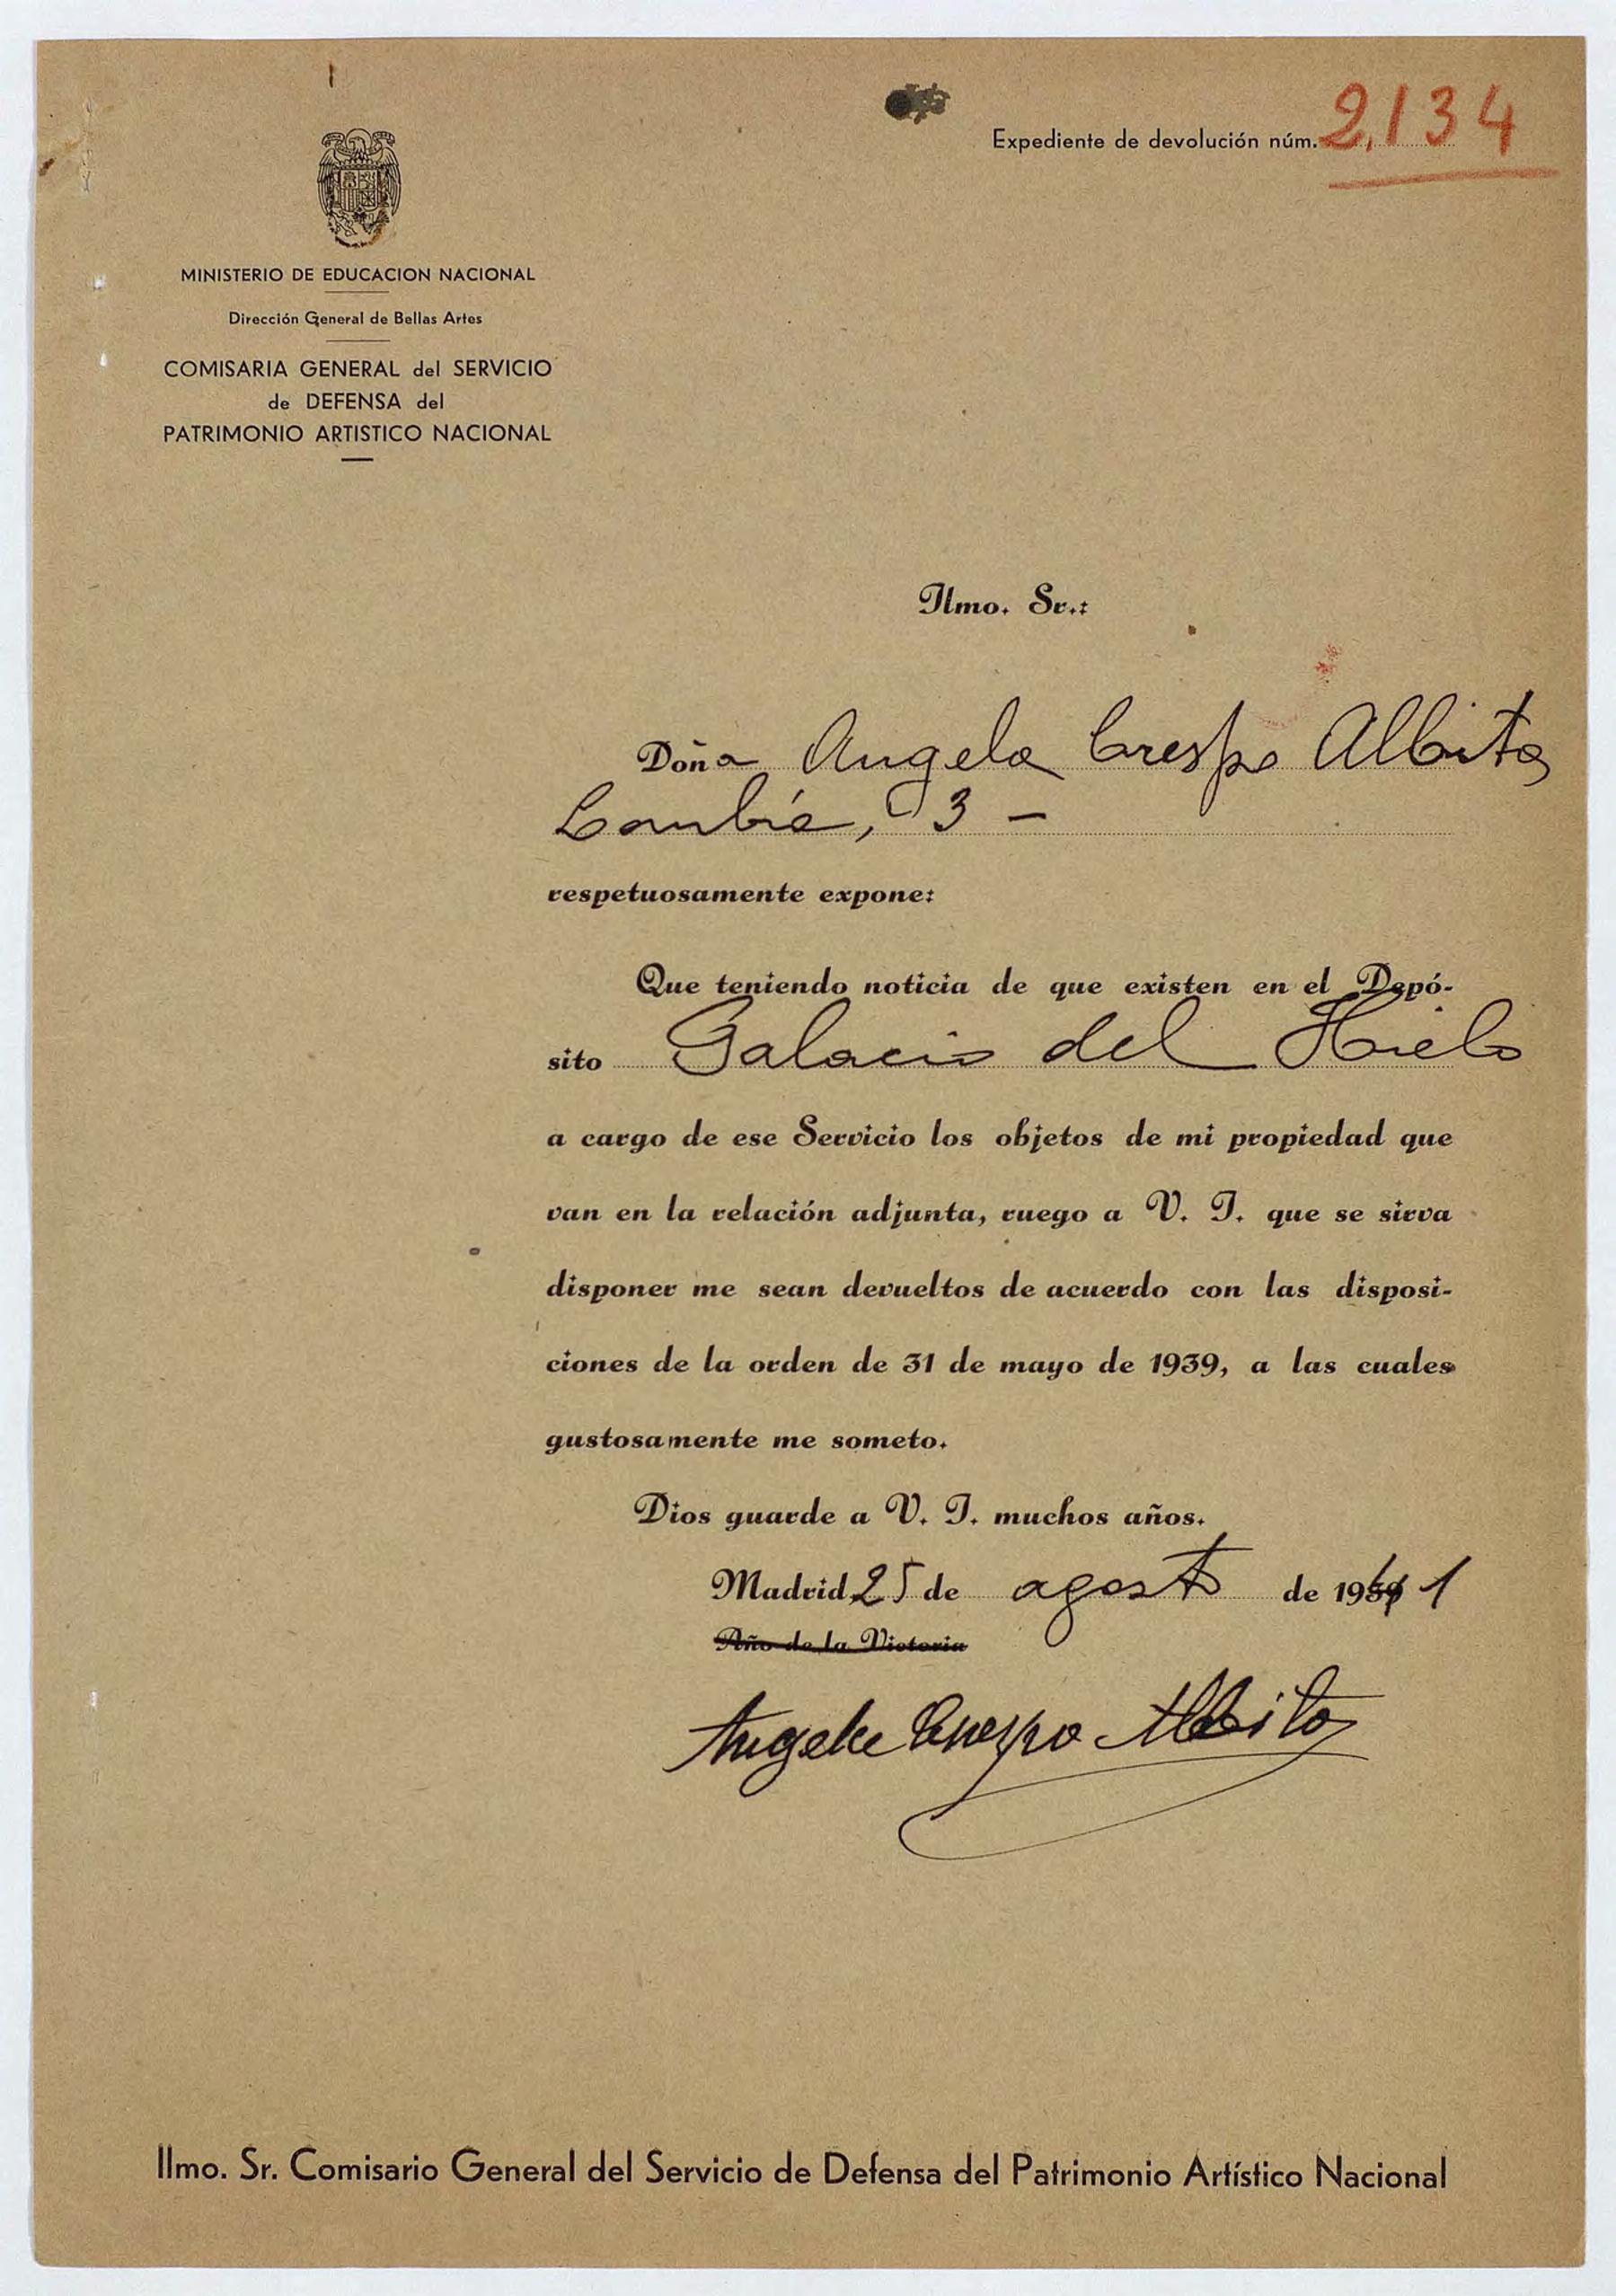 Expediente de devolución núm. 2,134
MINISTERIO DE EDUCACION NACIONAL
Dirección General de Bellas Artes
COMISARIA GENERAL del SERVICIO
de DEFENSA del
PATRIMONIO ARTISTICO NACIONAL
Ilmo. Sr.:
Doña Angela Crespo Albitos
3 -
respetuosamente expone:
Que teniendo noticia de que existen en el Depó-
sito Palacio del Hielo
a cargo de ese Servicio los objetos de mi propiedad que
van en la relación adjunta, ruego a V. I. que se sirva
disponer me sean devueltos de acuerdo con las disposi-
ciones de la orden de 31 de mayo de 1939, a las cuales
gustosamente me someto.
Dios guarde a V. I. muchos años.
Madrid 25 de agosto de 1941
Año de la Victoria
Angela Crespo Albitos
Ilmo. Sr. Comisario General del Servicio de Defensa del Patrimonio Artístico Nacional